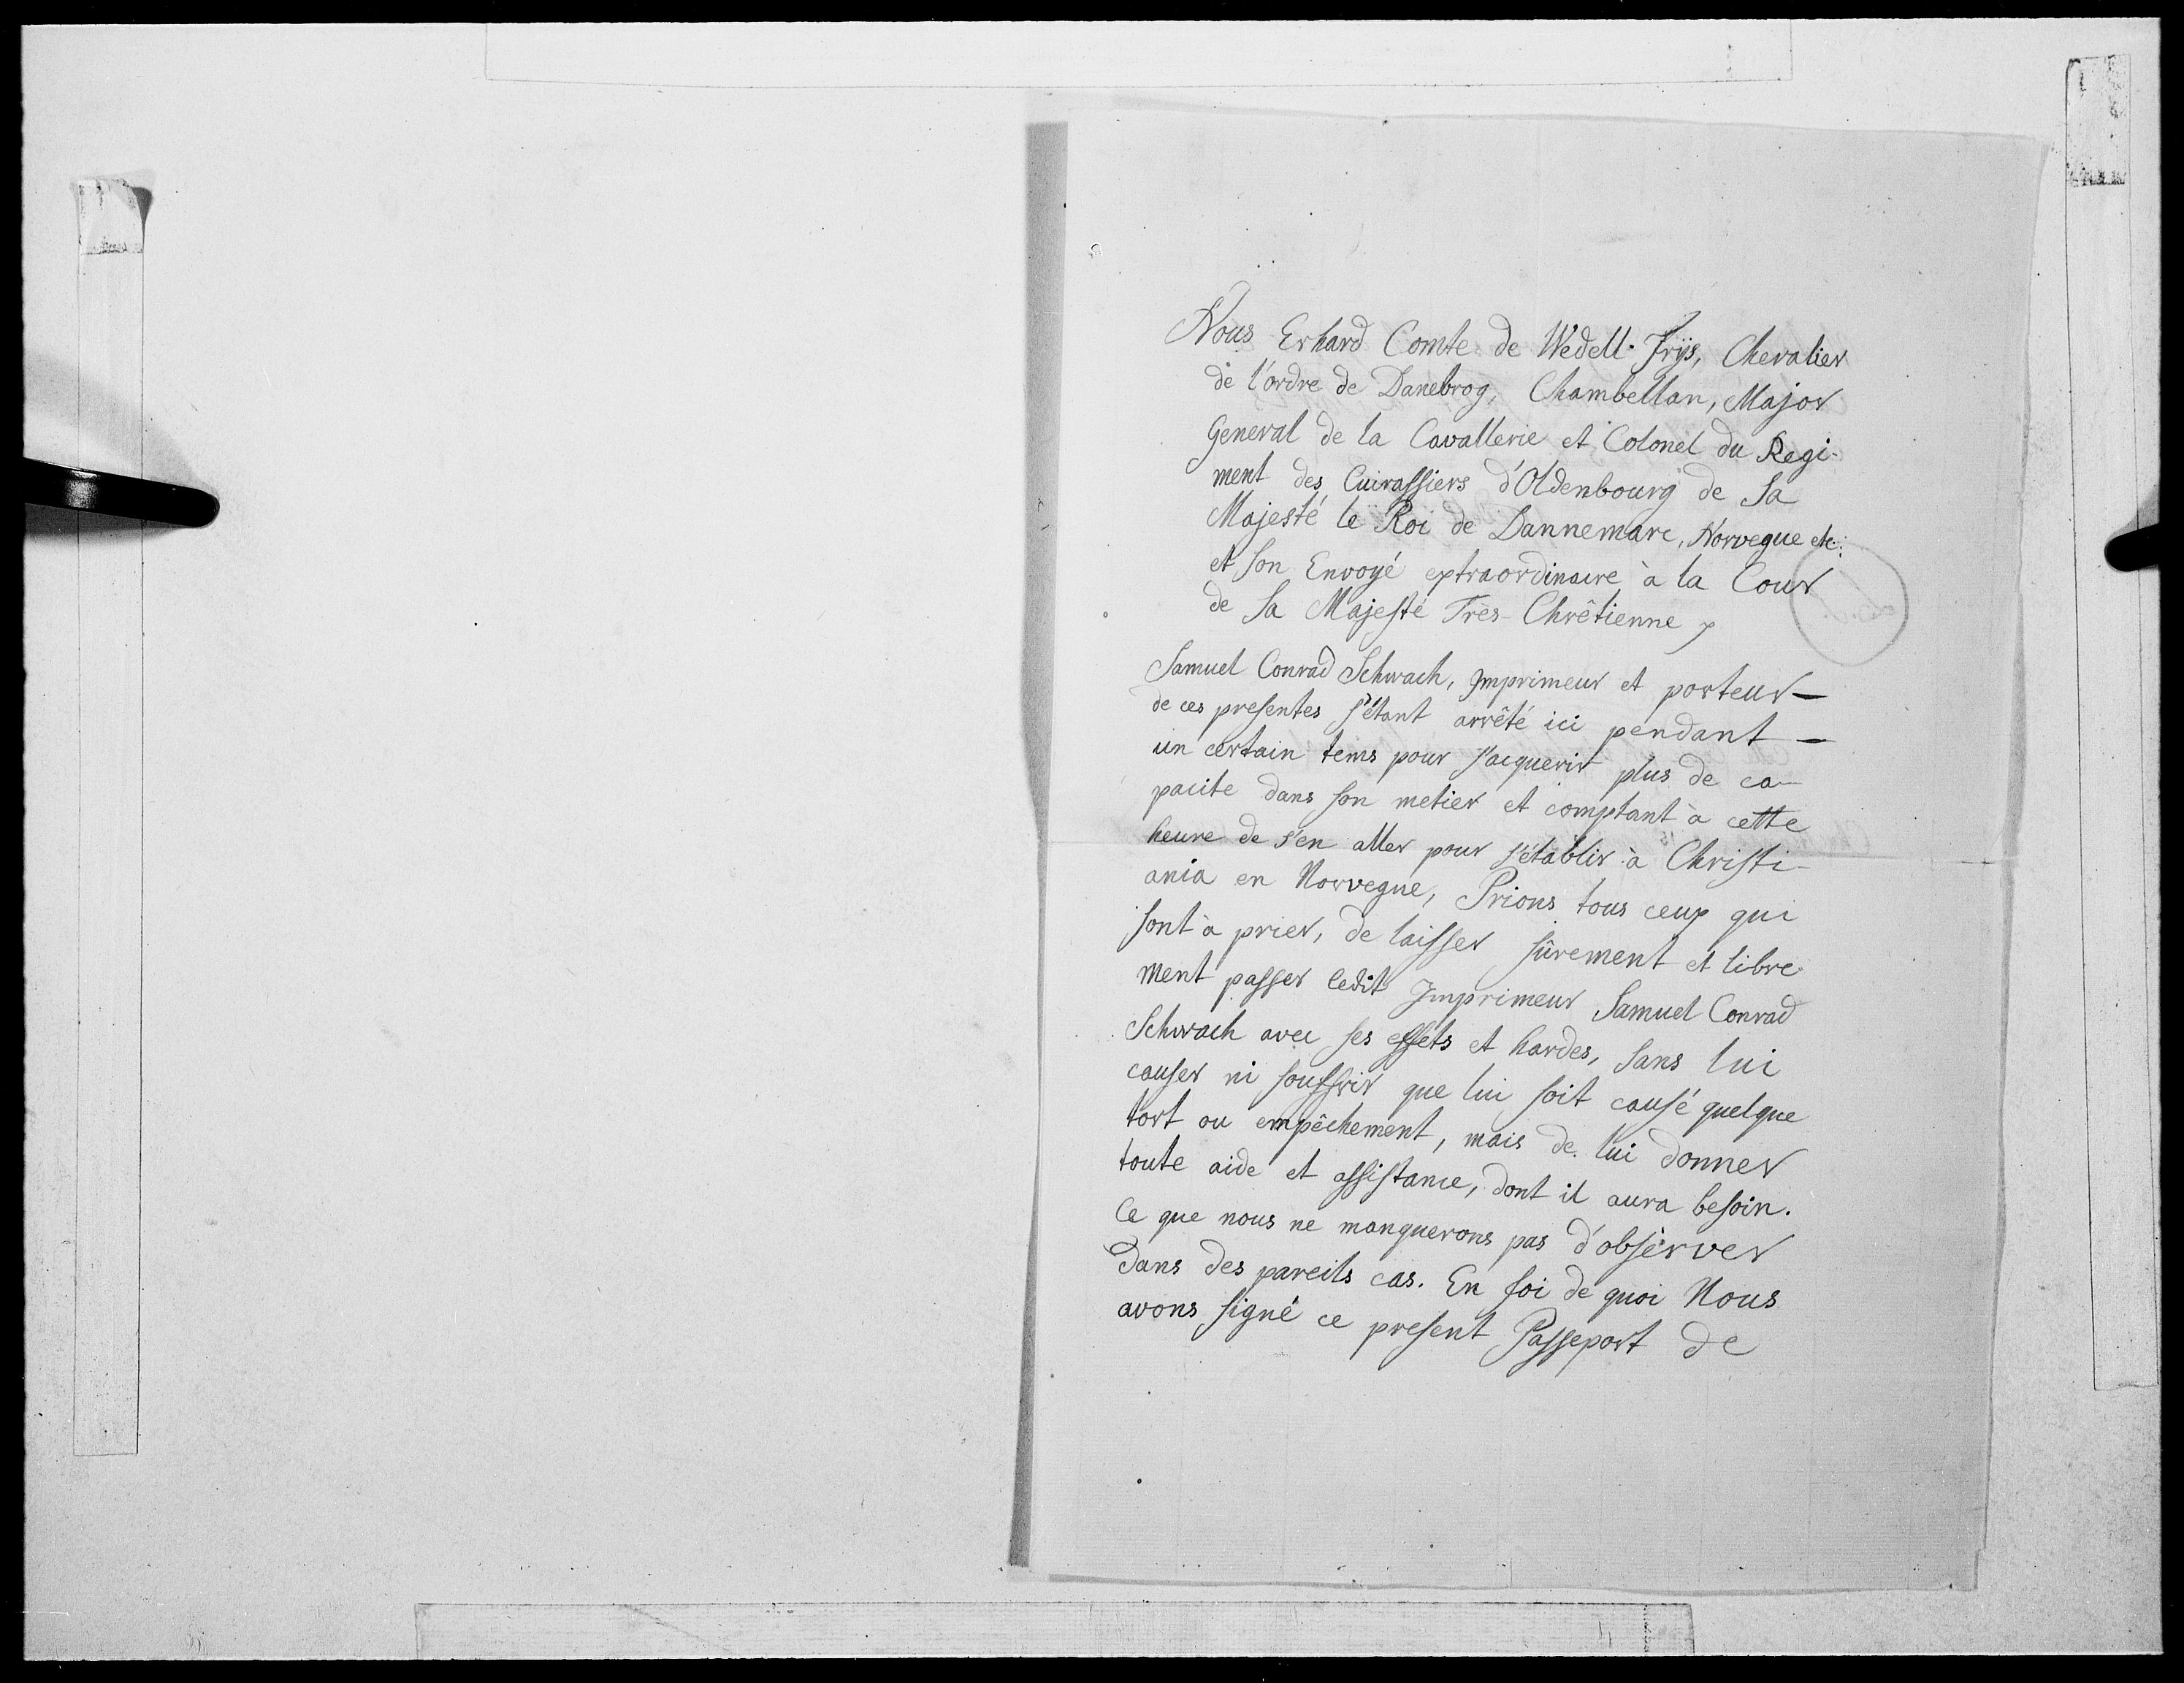 Nous Erhard Comte de Wedell-Frijs, Chevalier
de l'ordre de Danebrog, Chambellan, Major
General de la Cavallerie et Colonel du Regi-
ment des Cuirassiers d'Oldenbourg de Sa
Majesté le Roi de Dannemarc, Norvegue etc.
et son Envoyé extraordinaire à la Cour
de Sa Majesté Très-Chrêtienne,
Samuel Conrad Schwach, Imprimeur et porteur —
de ces presentes s'étant arrêté ici pendant —
un certain tems pour s'acquerir plus de ca-
pacite dans son metier et comptant à cette
heure de s'en aller pour s'établir à Christi-
ania en Norvegue, Prions tous ceux qui
sont à prier, de laisser sûrement et libre
ment passer ledit Imprimeur Samuel Conrad
Schwach avec ses effets et hardes, sans lui
causer ni souffrir que lui soit causé quelque
tort ou empêchement, mais de lui donner
toute aide et assistance, dont il aura besoin.
Ce que nous ne manquerons pas d'observer
dans des pareils cas. En foi de quoi Nous
avons signé ce present Passeport de